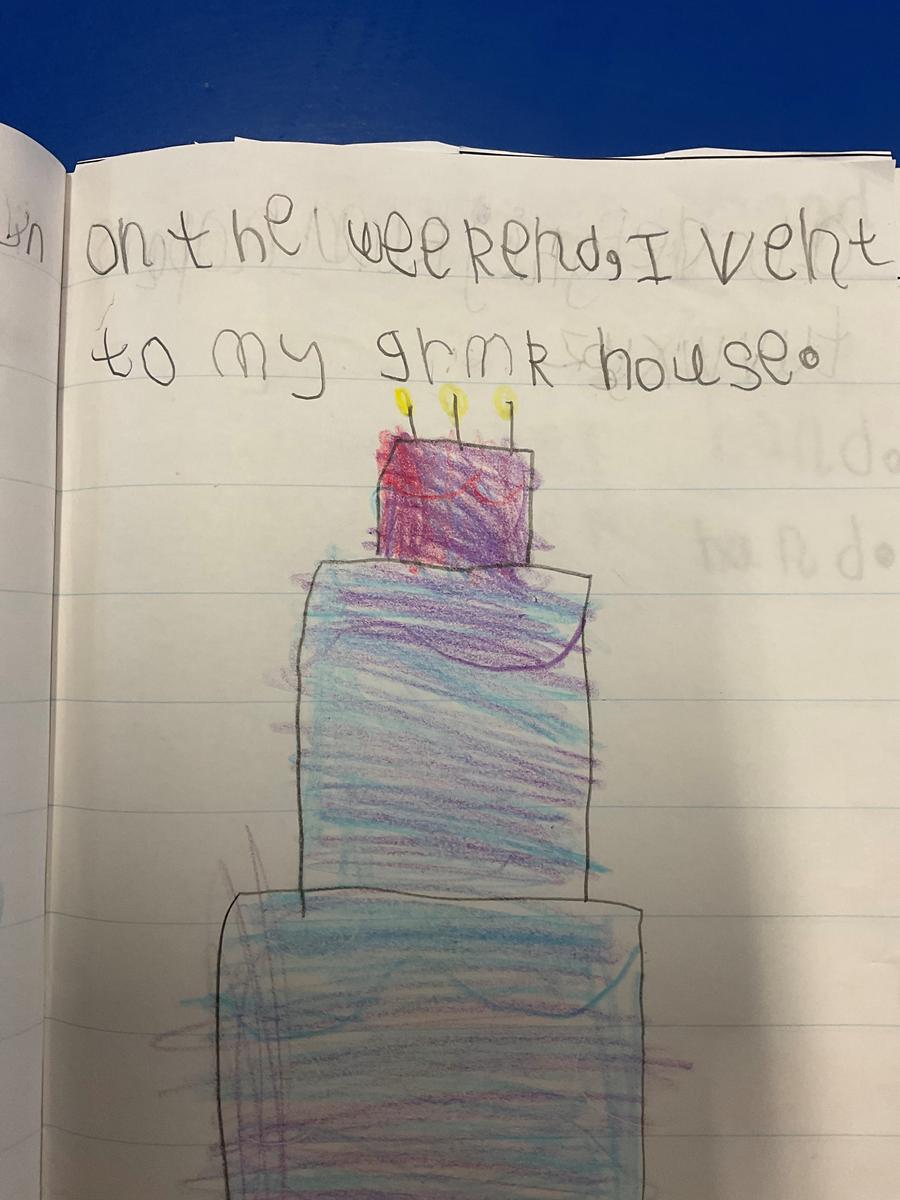 on the weekend, I vent
to my grmk house.